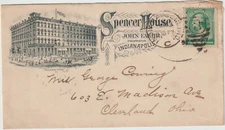 Spencer House,
INDIANAPOLIS
Mrs George Ewing
603 E. Madison Ave
Cleveland Ohio